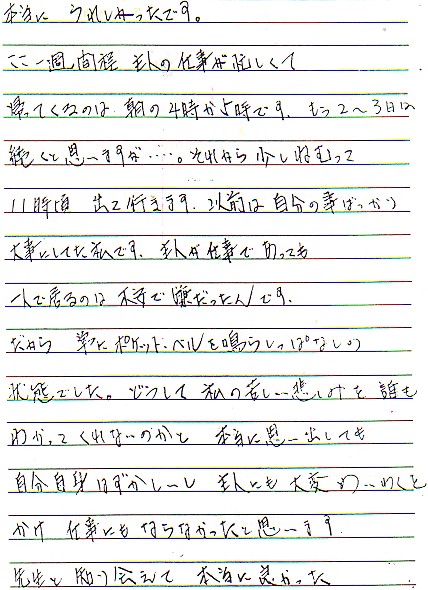 本当に うれしかったです。
ここ一週間程 主人の仕事が忙しくて
帰ってくるのは 朝の4時か5時です。もう2～3日は
続くと思いますが……。それから少しねむって
11時頃 出て行きます。以前は自分の事ばっかり
大事にしてた私です。主人が仕事であっても
一人で居るのは 不安で嫌だったんです。
だから 常にポケット・ベルを鳴らしっぱなしの
状態でした。どうして 私の苦しい悲しみを 誰も
わかってくれないのかと 本当に思い出しても
自分自身はずかしいし 主人にも大変めいわくを
かけ 仕事にもならなかったと思います。
先生と知り会えて 本当に良かった